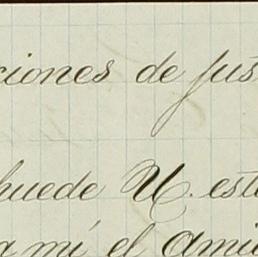 ciones de jus
puede U. est
a mí el Ami